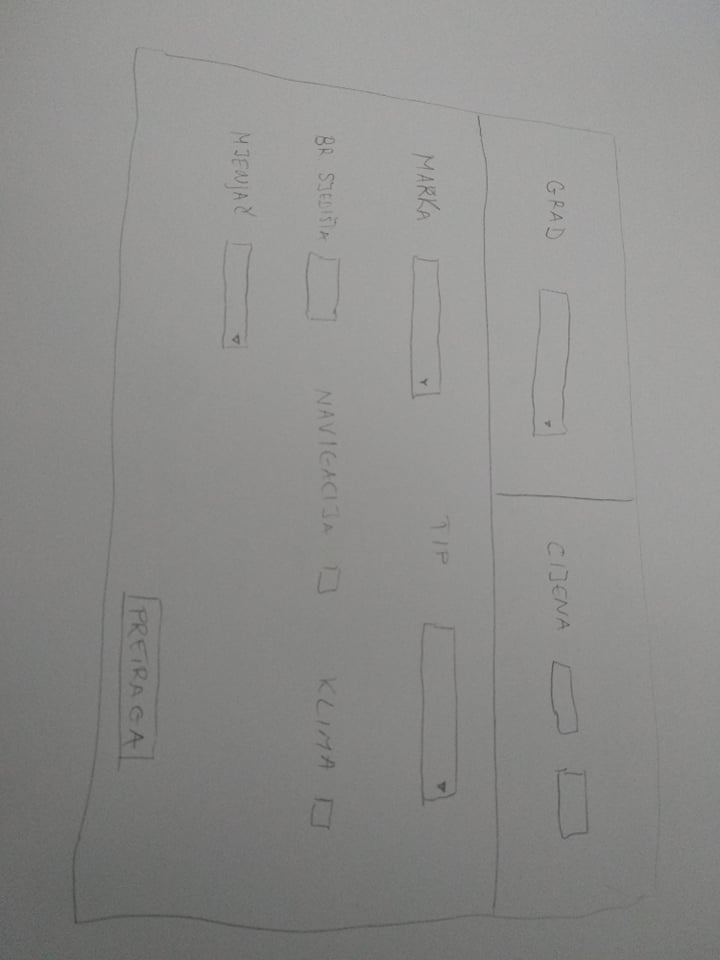 GRAD CIJENA
MARKA TIP
BR SJEDIŠTA NAVIGACIJA KLIMA
MJENJAČ
PRETRAGA